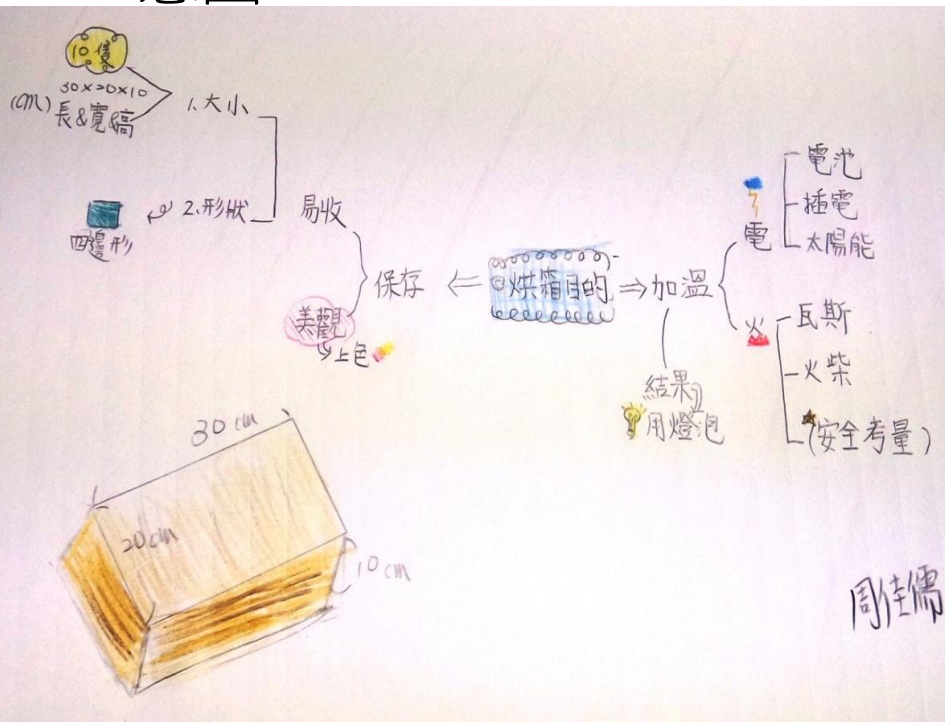 10隻
30×20×10
(cm)長&寬&高
1.大小
2.形狀
四邊形
易收
美觀
上色
保存
烘箱目的
加溫
結果
用燈泡
電
電池
插電
太陽能
火
瓦斯
火柴
(安全考量)
30 cm
20 cm
10 cm
周佳儒